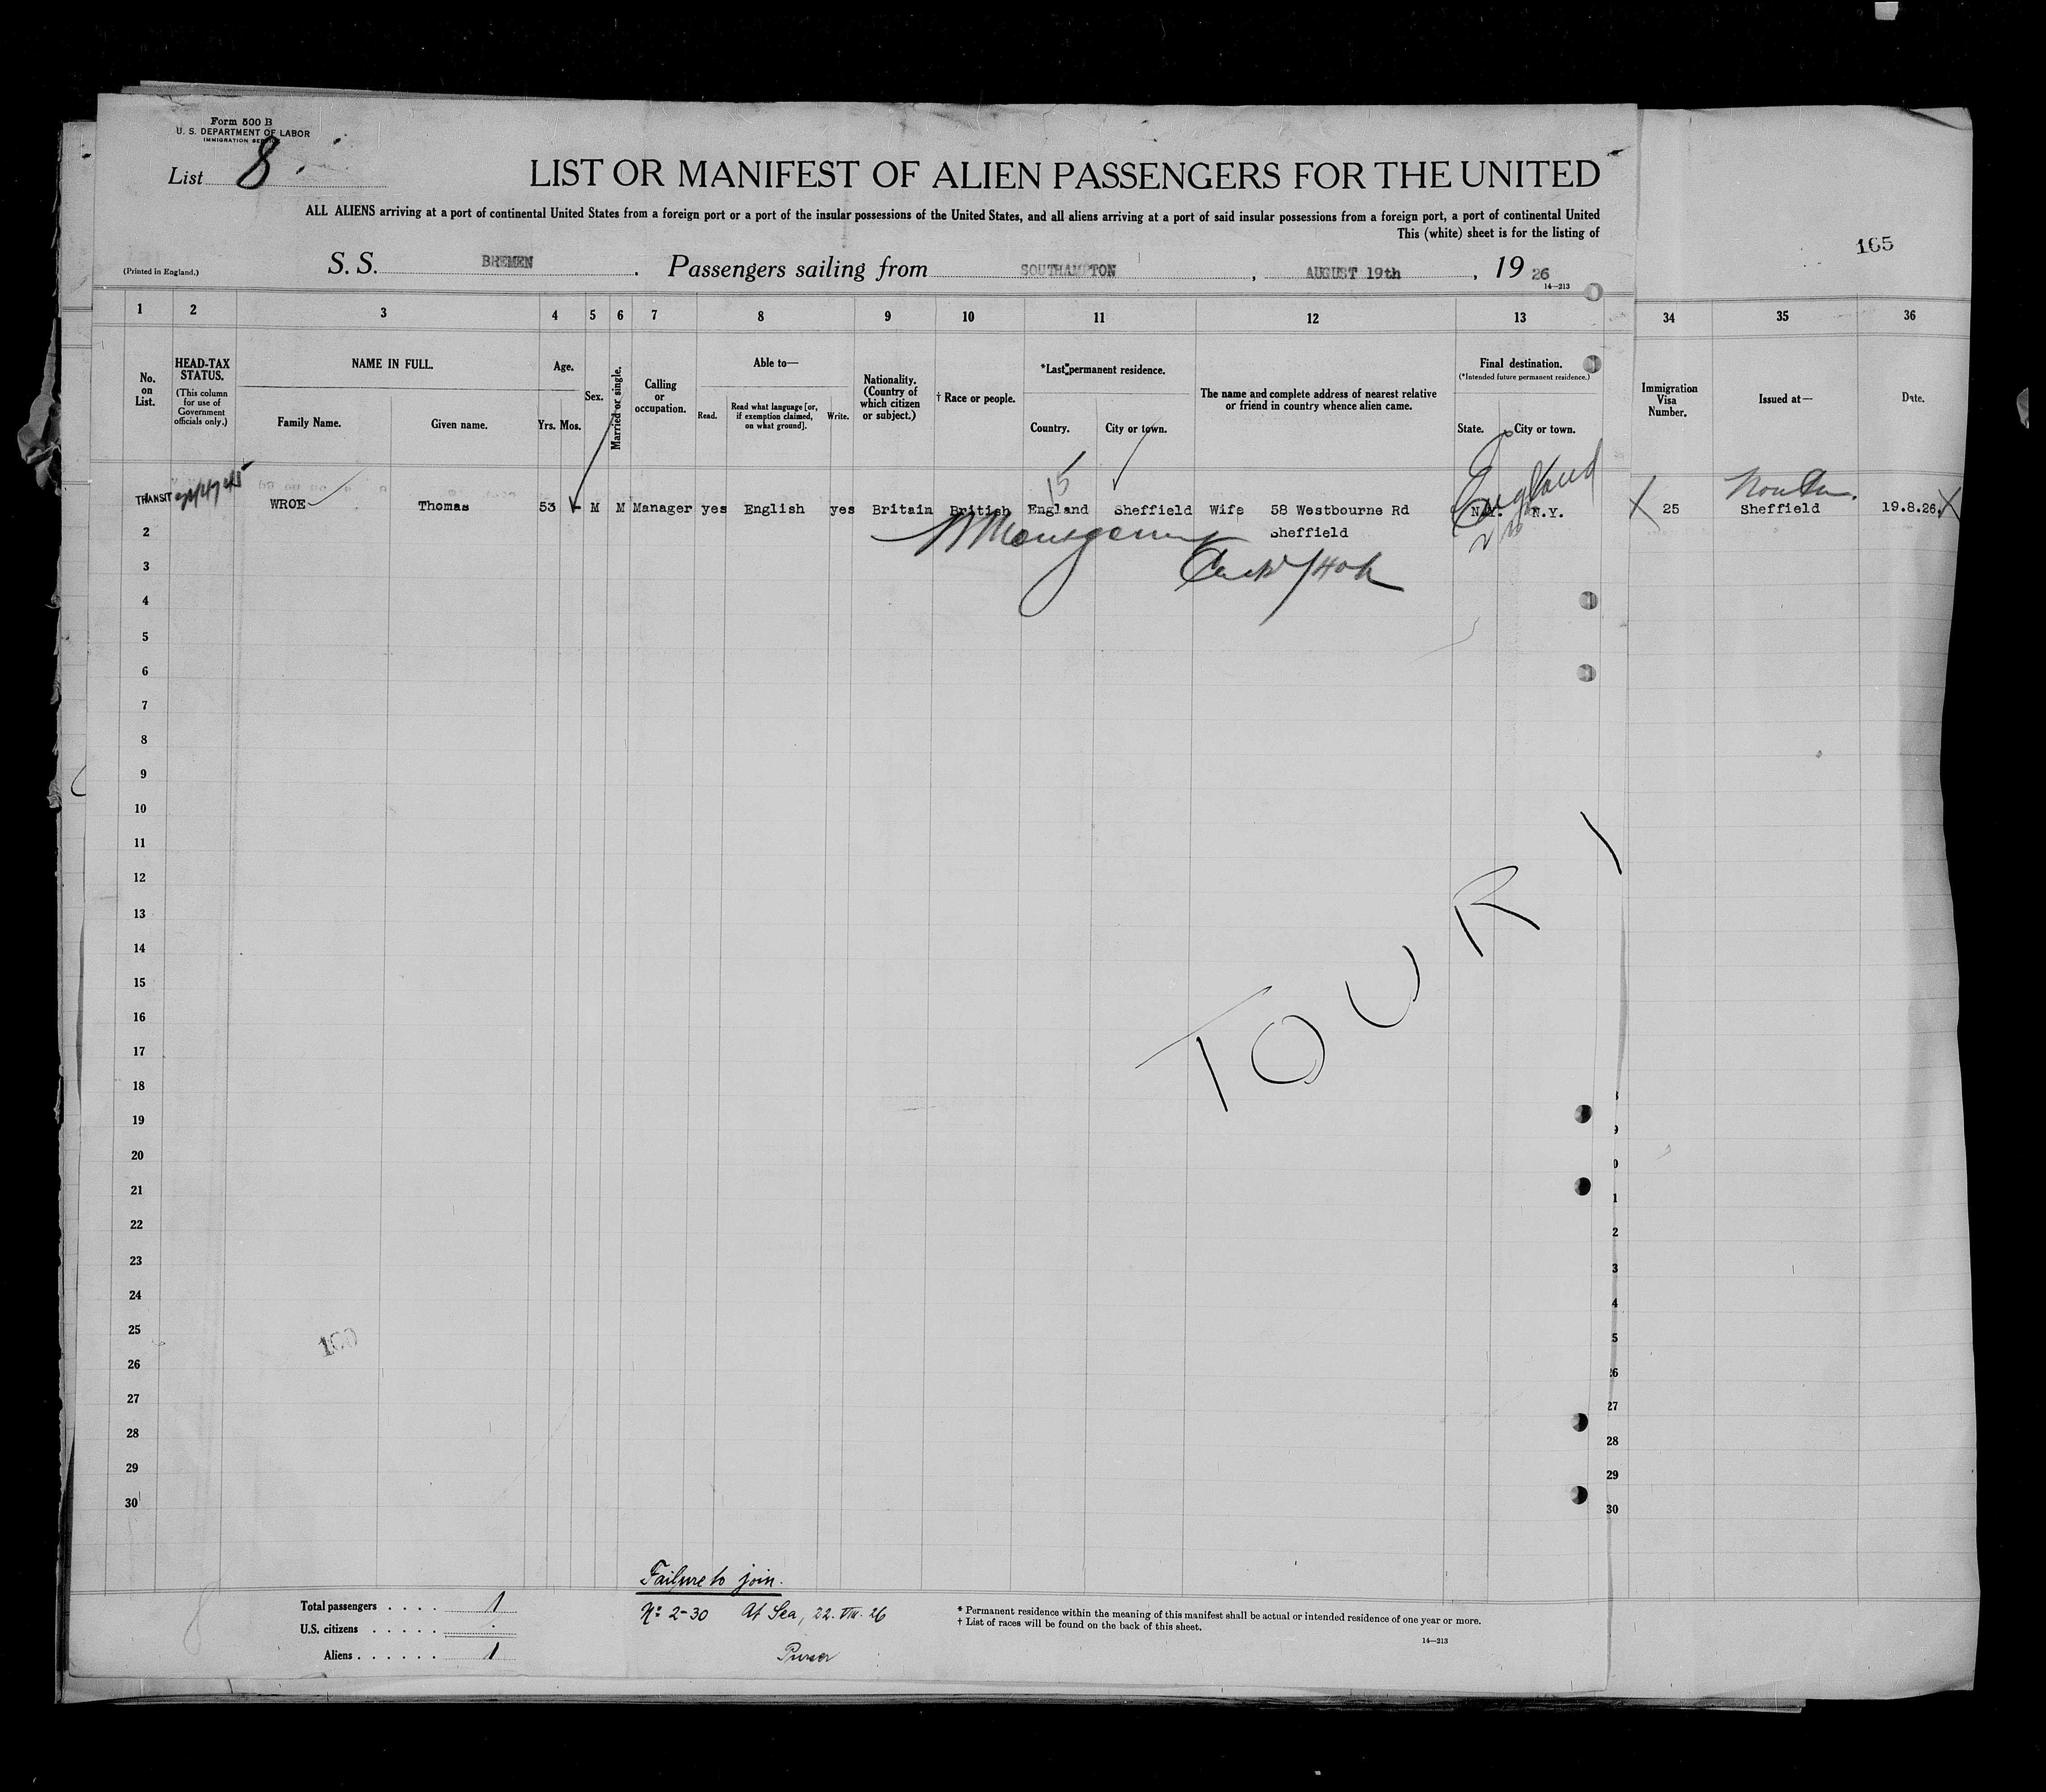 Form 500 B
U. S. DEPARTMENT OF LABOR
IMMIGRATION
List 8
LIST OR MANIFEST OF ALIEN PASSENGERS FOR THE UNITED
ALL ALIENS arriving at a port of continental United States from a foreign port or a port of the insular possessions of the United States, and all aliens arriving at a port of said insular possessions from a foreign port, a port of continental United
This (white) sheet is for the listing of
165
(Printed in England.) S. S. BREMEN . Passengers sailing from SOUTHAMPTON , AUGUST 19th , 19 26
14—213
1 2 3 4 5 6 7 8 9 10 11 12 13 34 35 36
No. on List.
HEAD-TAX STATUS.
(This column for use of Government officials only.)
NAME IN FULL.
Family Name. Given name.
Age.
Yrs. Mos.
Sex.
Married or single.
Calling or occupation.
Able to—
Read. Read what language [or, if exemption claimed, on what ground]. Write.
Nationality. (Country of which citizen or subject.)
† Race or people.
*Last permanent residence.
Country. City or town.
The name and complete address of nearest relative or friend in country whence alien came.
Final destination.
(*Intended future permanent residence.)
State. City or town.
Immigration Visa Number.
Issued at—
Date.
15
England
TRANSIT WROE Thomas 53 M M Manager yes English yes Britain British England Sheffield Wife 58 Westbourne Rd N.Y. N.Y. 25 Sheffield 19.8.26.
2 Sheffield
3
4
5
6
7
8
9
10
11
12
13
14
15
16
17
18
19
20
21
22
23
24
25
26
27
28
29
30
TOURI
9
0
1
2
3
4
5
26
27
28
29
30
Failure to join.
No 2-30 At Sea, 22. VIII. 26
Purser
Total passengers . . . . 1
U.S. citizens . . . . .
Aliens . . . . . . 1
* Permanent residence within the meaning of this manifest shall be actual or intended residence of one year or more.
† List of races will be found on the back of this sheet.
14—213